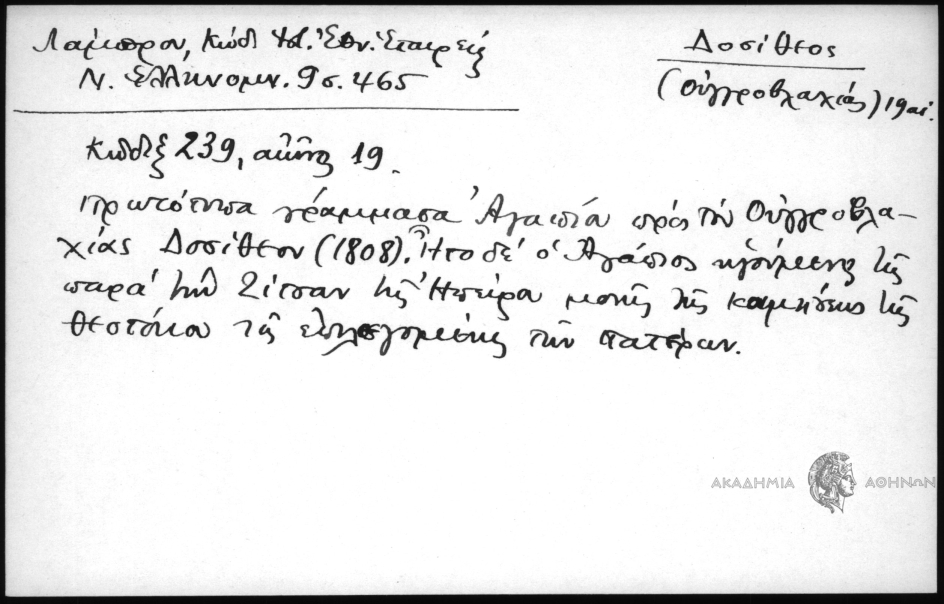 Λάμπρου, Κώδ. Ἱστ. Ἐθν. Ἑταιρείας
Ν. Ἑλληνομν. 9 σ. 465
Δοσίθεος
(Οὐγγροβλαχίας) 19 αἰ.
Κῶδιξ 239, αἰῶνος 19.
πρωτότυπα γράμματα Ἀγαπίου πρὸς τὸν Οὐγγροβλα-
χίας Δοσίθεον (1808). Ἦτο δὲ ὁ Ἀγάπιος ἡγούμενος τῆς
παρὰ τὴν Ζίτσαν τῆς Ἠπείρου μονῆς τῆς κοιμήσεως τῆς
Θεοτόκου τῆς ἐπιλεγομένης τῶν Πατέρων.
ΑΚΑΔΗΜΙΑ ΑΘΗΝΩΝ